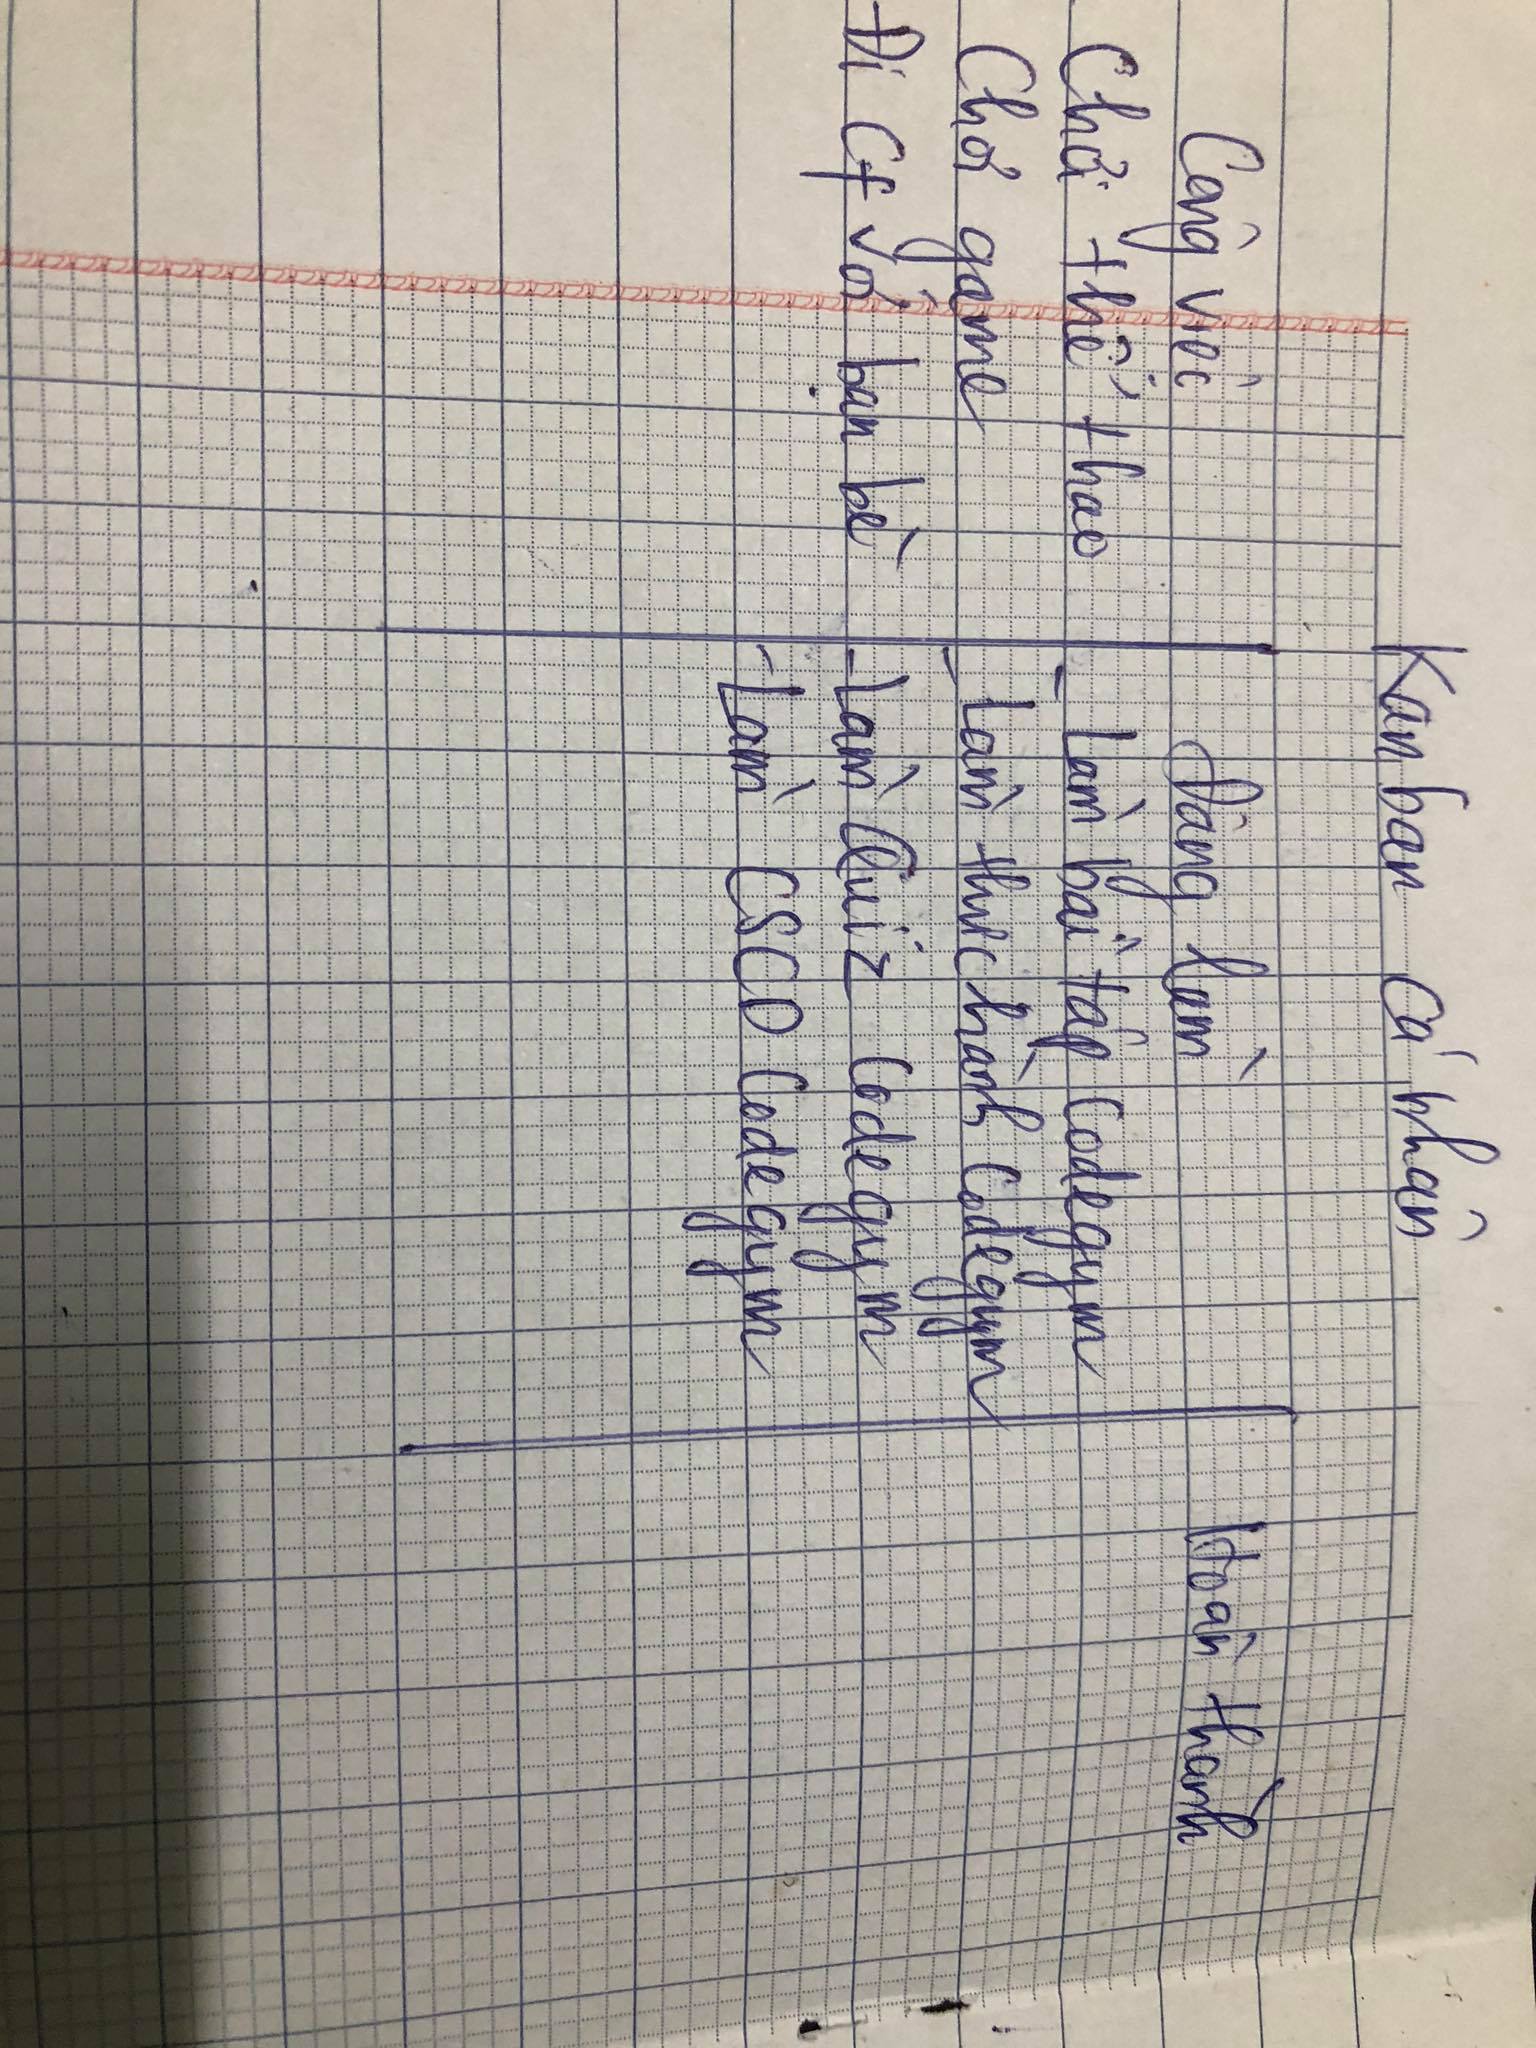 Kanban cá nhân
Công việc
Đang làm
Hoàn thành
Chơi thể thao
- Làm bài tập Codegym
Chơi game
- Làm thực hành Codegym
- Đi Cf với bạn bè
- Làm Quiz Codegym
- Làm CSCD Codegym